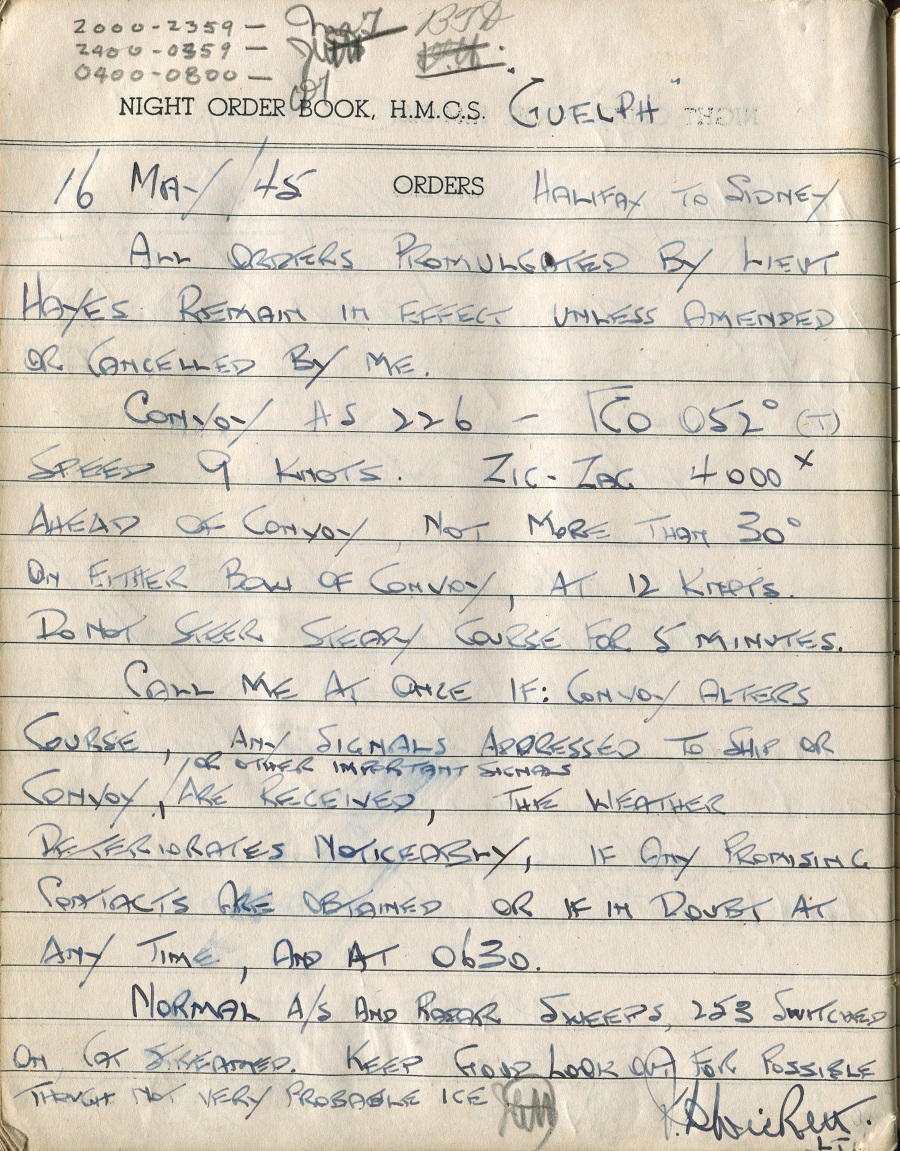 2000-2359 —
2400-0359 —
0400-0800 —
NIGHT ORDER BOOK, H.M.C.S. "GUELPH"
16 MAY/45 ORDERS HALIFAX TO SIDNEY
ALL ORDERS PROMULGATED BY LIEUT
HAYES REMAIN IN EFFECT UNLESS AMENDED
OR CANCELLED BY ME.
CONVOY AS 226 - CO 052° (T)
SPEED 9 KNOTS. ZIG-ZAG 4000ˣ
AHEAD OF CONVOY, NOT MORE THAN 30°
ON EITHER BOW OF CONVOY, AT 12 KNOTS.
DO NOT STEER STEADY COURSE FOR 5 MINUTES.
CALL ME AT ONCE IF: CONVOY ALTERS
COURSE, ANY SIGNALS ADDRESSED TO SHIP OR
OR OTHER IMPORTANT SIGNALS
CONVOY, ARE RECEIVED, THE WEATHER
DETERIORATES NOTICEABLY, IF ANY PROMISING
CONTACTS ARE OBTAINED OR IF IN DOUBT AT
ANY TIME, AND AT 0630.
NORMAL A/S AND RADAR SWEEPS, 253 SWITCHED
ON CAT STREAMED. KEEP GOOD LOOK OUT FOR POSSIBLE
THOUGH NOT VERY PROBABLE ICE
LT.